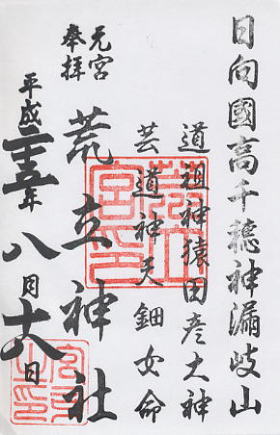 日向國高千穂神漏岐山
道祖神猿田彦大神
芸道神天鈿女命
元宮
奉拝
荒立神社
平成二十五年八月十八日